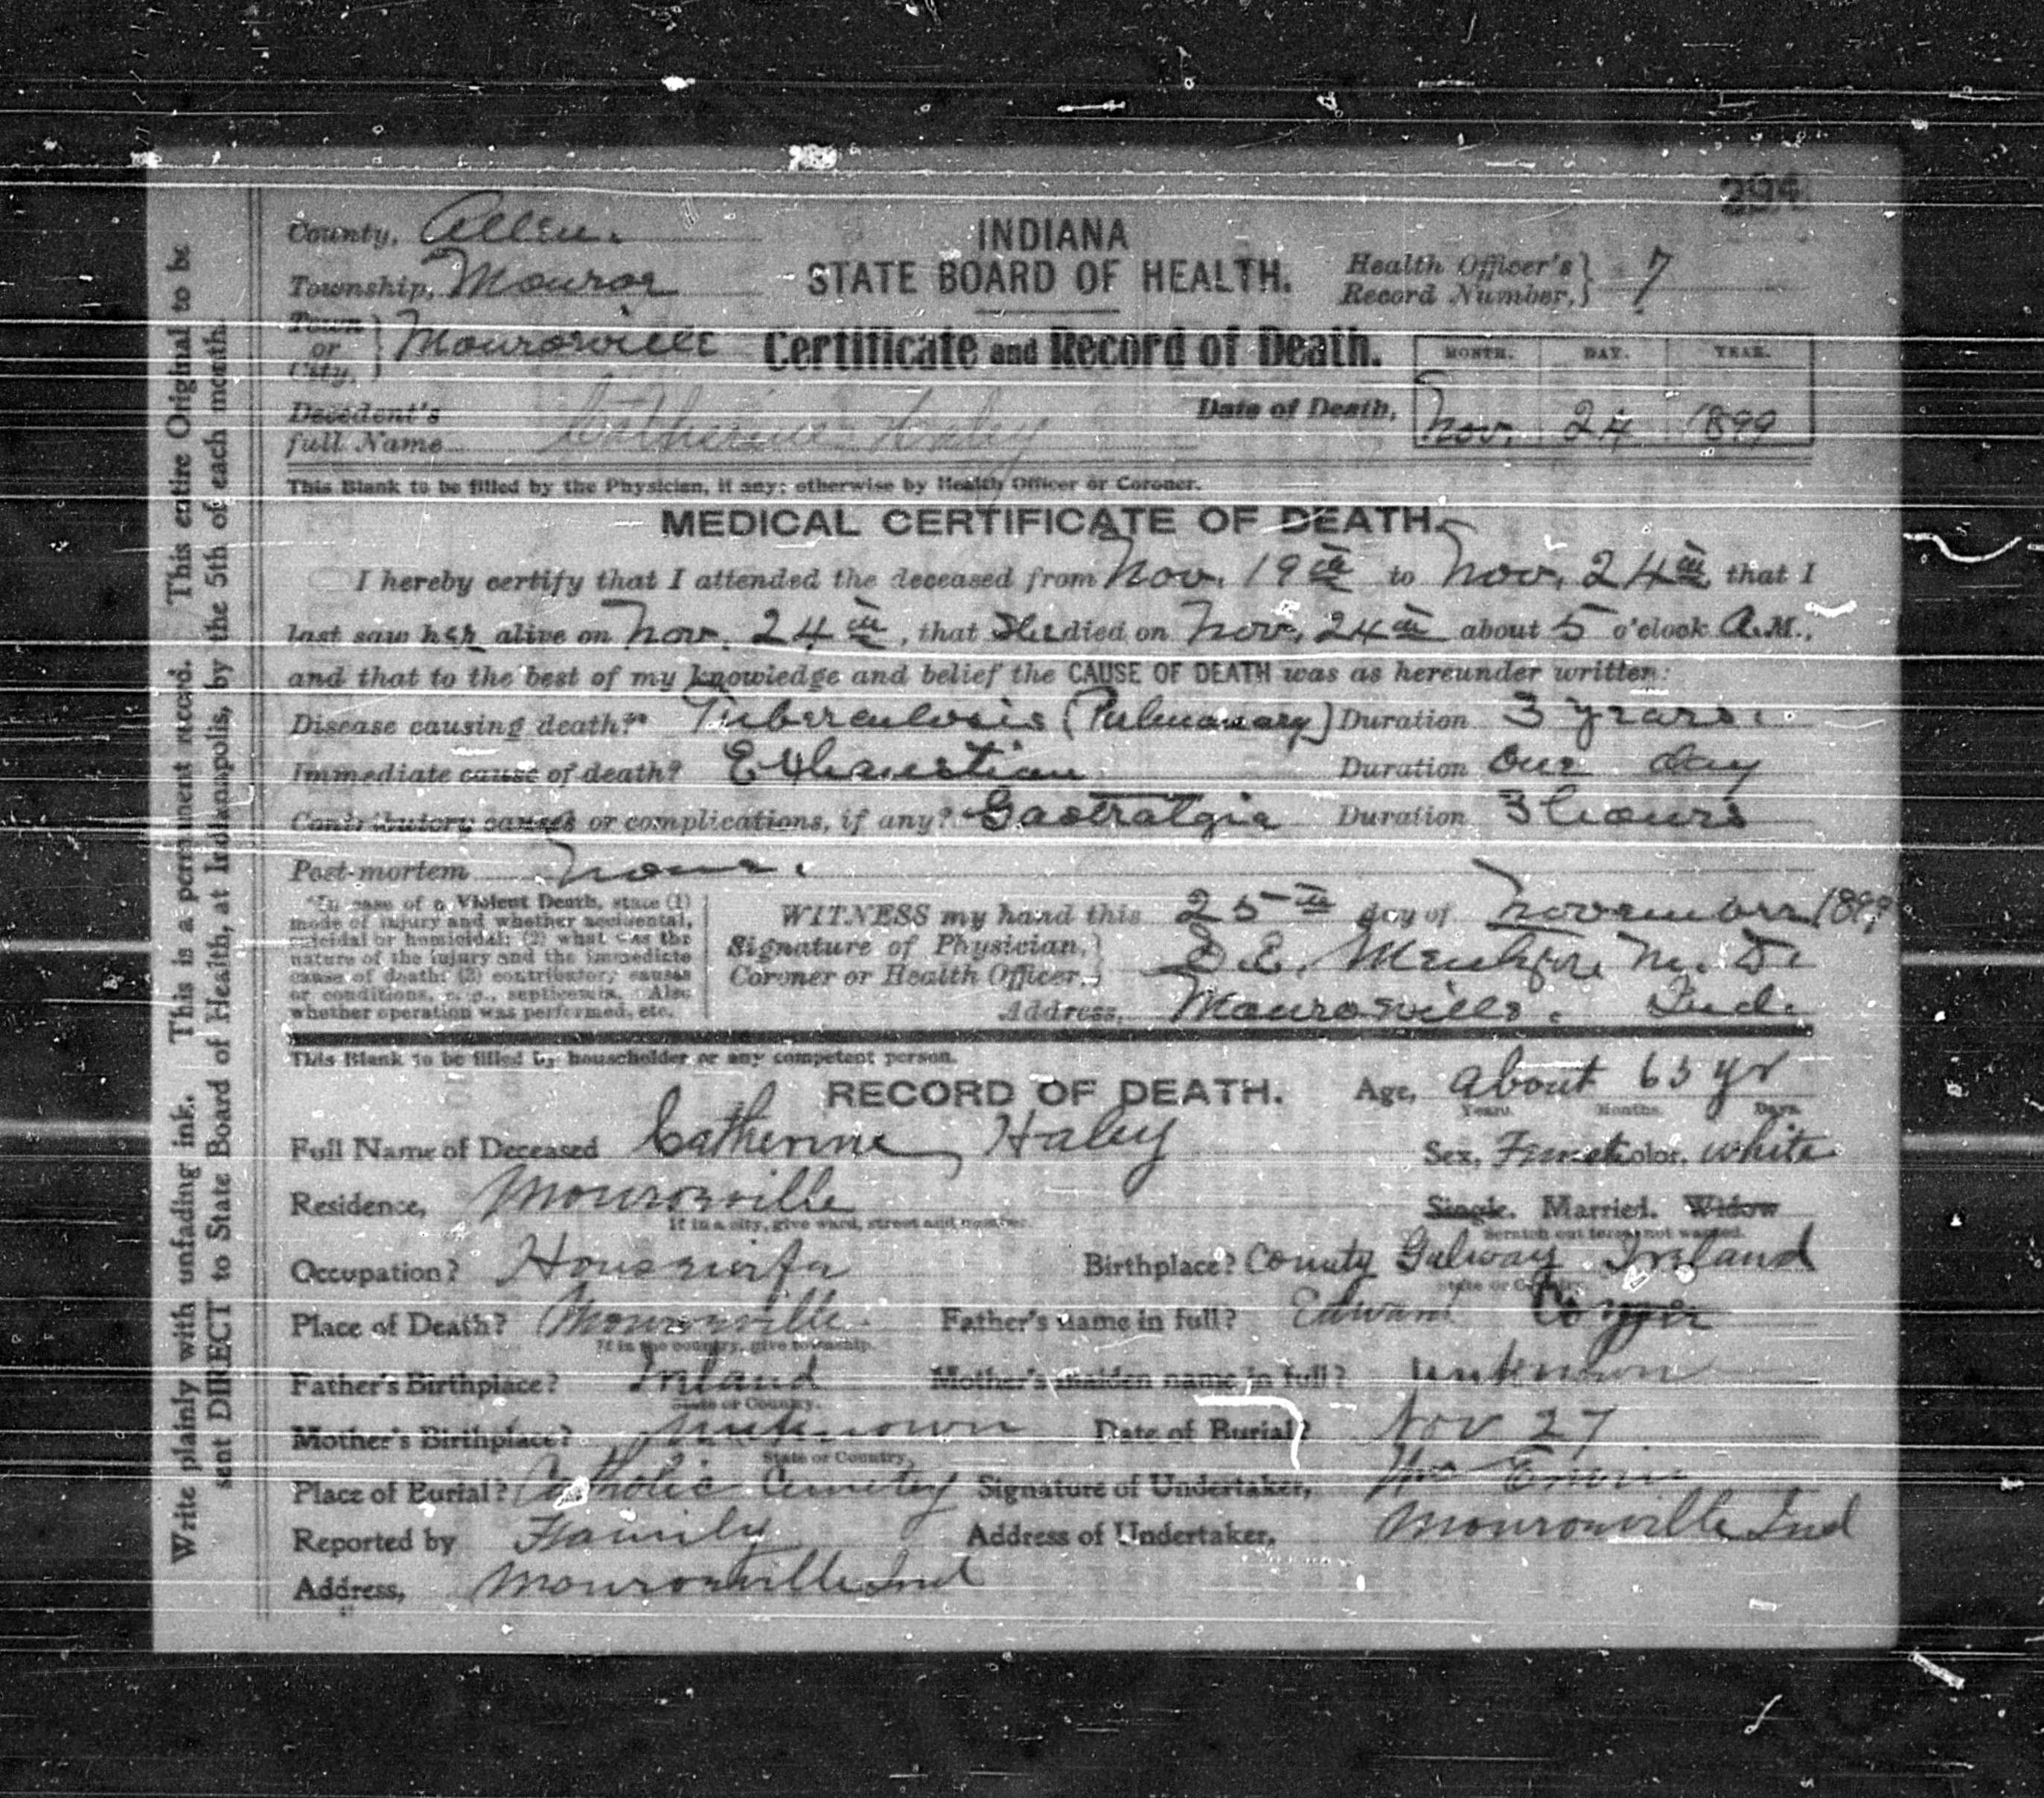 294
County, Allen.
INDIANA
Township, Monroe
STATE BOARD OF HEALTH.
Health Officer's Record Number, 7
Town or City, Monroeville
Certificate and Record of Death.
MONTH. DAY. YEAR.
Decedent's full Name Catherine Haley
Date of Death, Nov. 24 1899
This Blank to be filled by the Physician, if any; otherwise by Health Officer or Coroner.
MEDICAL CERTIFICATE OF DEATH.
I hereby certify that I attended the deceased from Nov. 19th to Nov. 24th that I
last saw her alive on Nov. 24th, that She died on Nov. 24th about 5 o'clock A.M.,
and that to the best of my knowledge and belief the CAUSE OF DEATH was as hereunder written:
Disease causing death?* Tuberculosis (Pulmonary) Duration 3 years.
Immediate cause of death? Exhaustion Duration One day
Contributory causes or complications, if any? Gastralgia Duration 3 hours
Post-mortem None.
*In case of a Violent Death, state (1)
mode of injury and whether accidental,
suicidal or homicidal; (2) what was the
nature of the injury and the immediate
cause of death; (3) contributory causes
or conditions, e. g., septicemia. Also
whether operation was performed, etc.
WITNESS my hand this 25th day of November 1899
Signature of Physician, Coroner or Health Officer, D. E. M. D.
Address, Monroeville. Ind.
This Blank to be filled by householder or any competent person.
RECORD OF DEATH.
Age, about 63 yr
Years. Months. Days.
Full Name of Deceased Catherine Haley
Sex, Female Color, white
Residence, Monroeville
If in a city, give ward, street and number.
Single. Married. Widow
Scratch out terms not wanted.
Occupation? Housewife
Birthplace? County Galway Ireland
State or Country.
Place of Death? Monroeville
If in the country, give township.
Father's name in full? Edward
Father's Birthplace? Ireland
State or Country.
Mother's maiden name in full? unknown
Mother's Birthplace? unknown
State or Country.
Date of Burial? Nov 27
Place of Burial? Catholic Cemetery
Signature of Undertaker, Wm
Reported by Family
Address of Undertaker, Monroeville Ind
Address, Monroeville Ind
Write plainly with unfading ink. This is a permanent record. This entire Original to be
sent DIRECT to State Board of Health, at Indianapolis, by the 5th of each month.